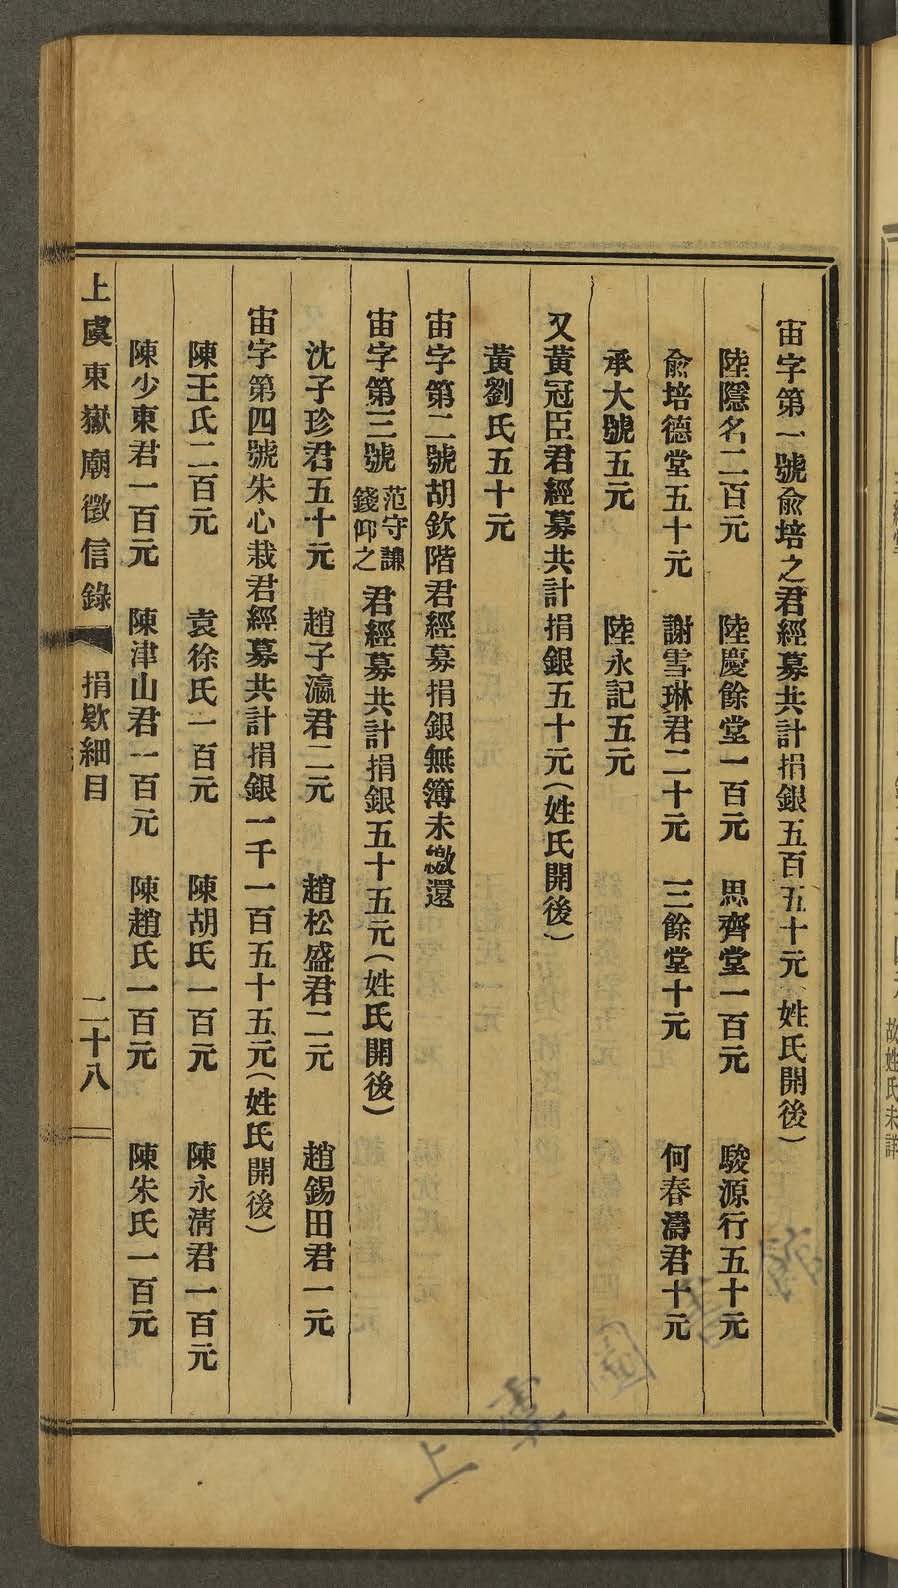 宙字第一號俞培之君經募共計捐銀五百五十元(姓氏開後)
陸隱名二百元 陸慶餘堂一百元 思齊堂一百元 駿源行五十元
俞培德堂五十元 謝雪琳君二十元 三餘堂十元 何春濤君十元
承大號五元 陸永記五元
又黃冠臣君經募共計捐銀五十元(姓氏開後)
黃劉氏五十元
宙字第二號胡欽階君經募捐銀無簿未繳還
宙字第三號范守謙錢仰之君經募共計捐銀五十五元(姓氏開後)
沈子珍君五十元 趙子瀛君二元 趙松盛君二元 趙錫田君一元
宙字第四號朱心栽君經募共計捐銀一千一百五十五元(姓氏開後)
陳王氏二百元 袁徐氏一百元 陳胡氏一百元 陳永清君一百元
陳少東君一百元 陳津山君一百元 陳趙氏一百元 陳朱氏一百元
上虞東嶽廟徵信錄 捐欵細目 二十八
故姓氏未詳
上虞圖書館